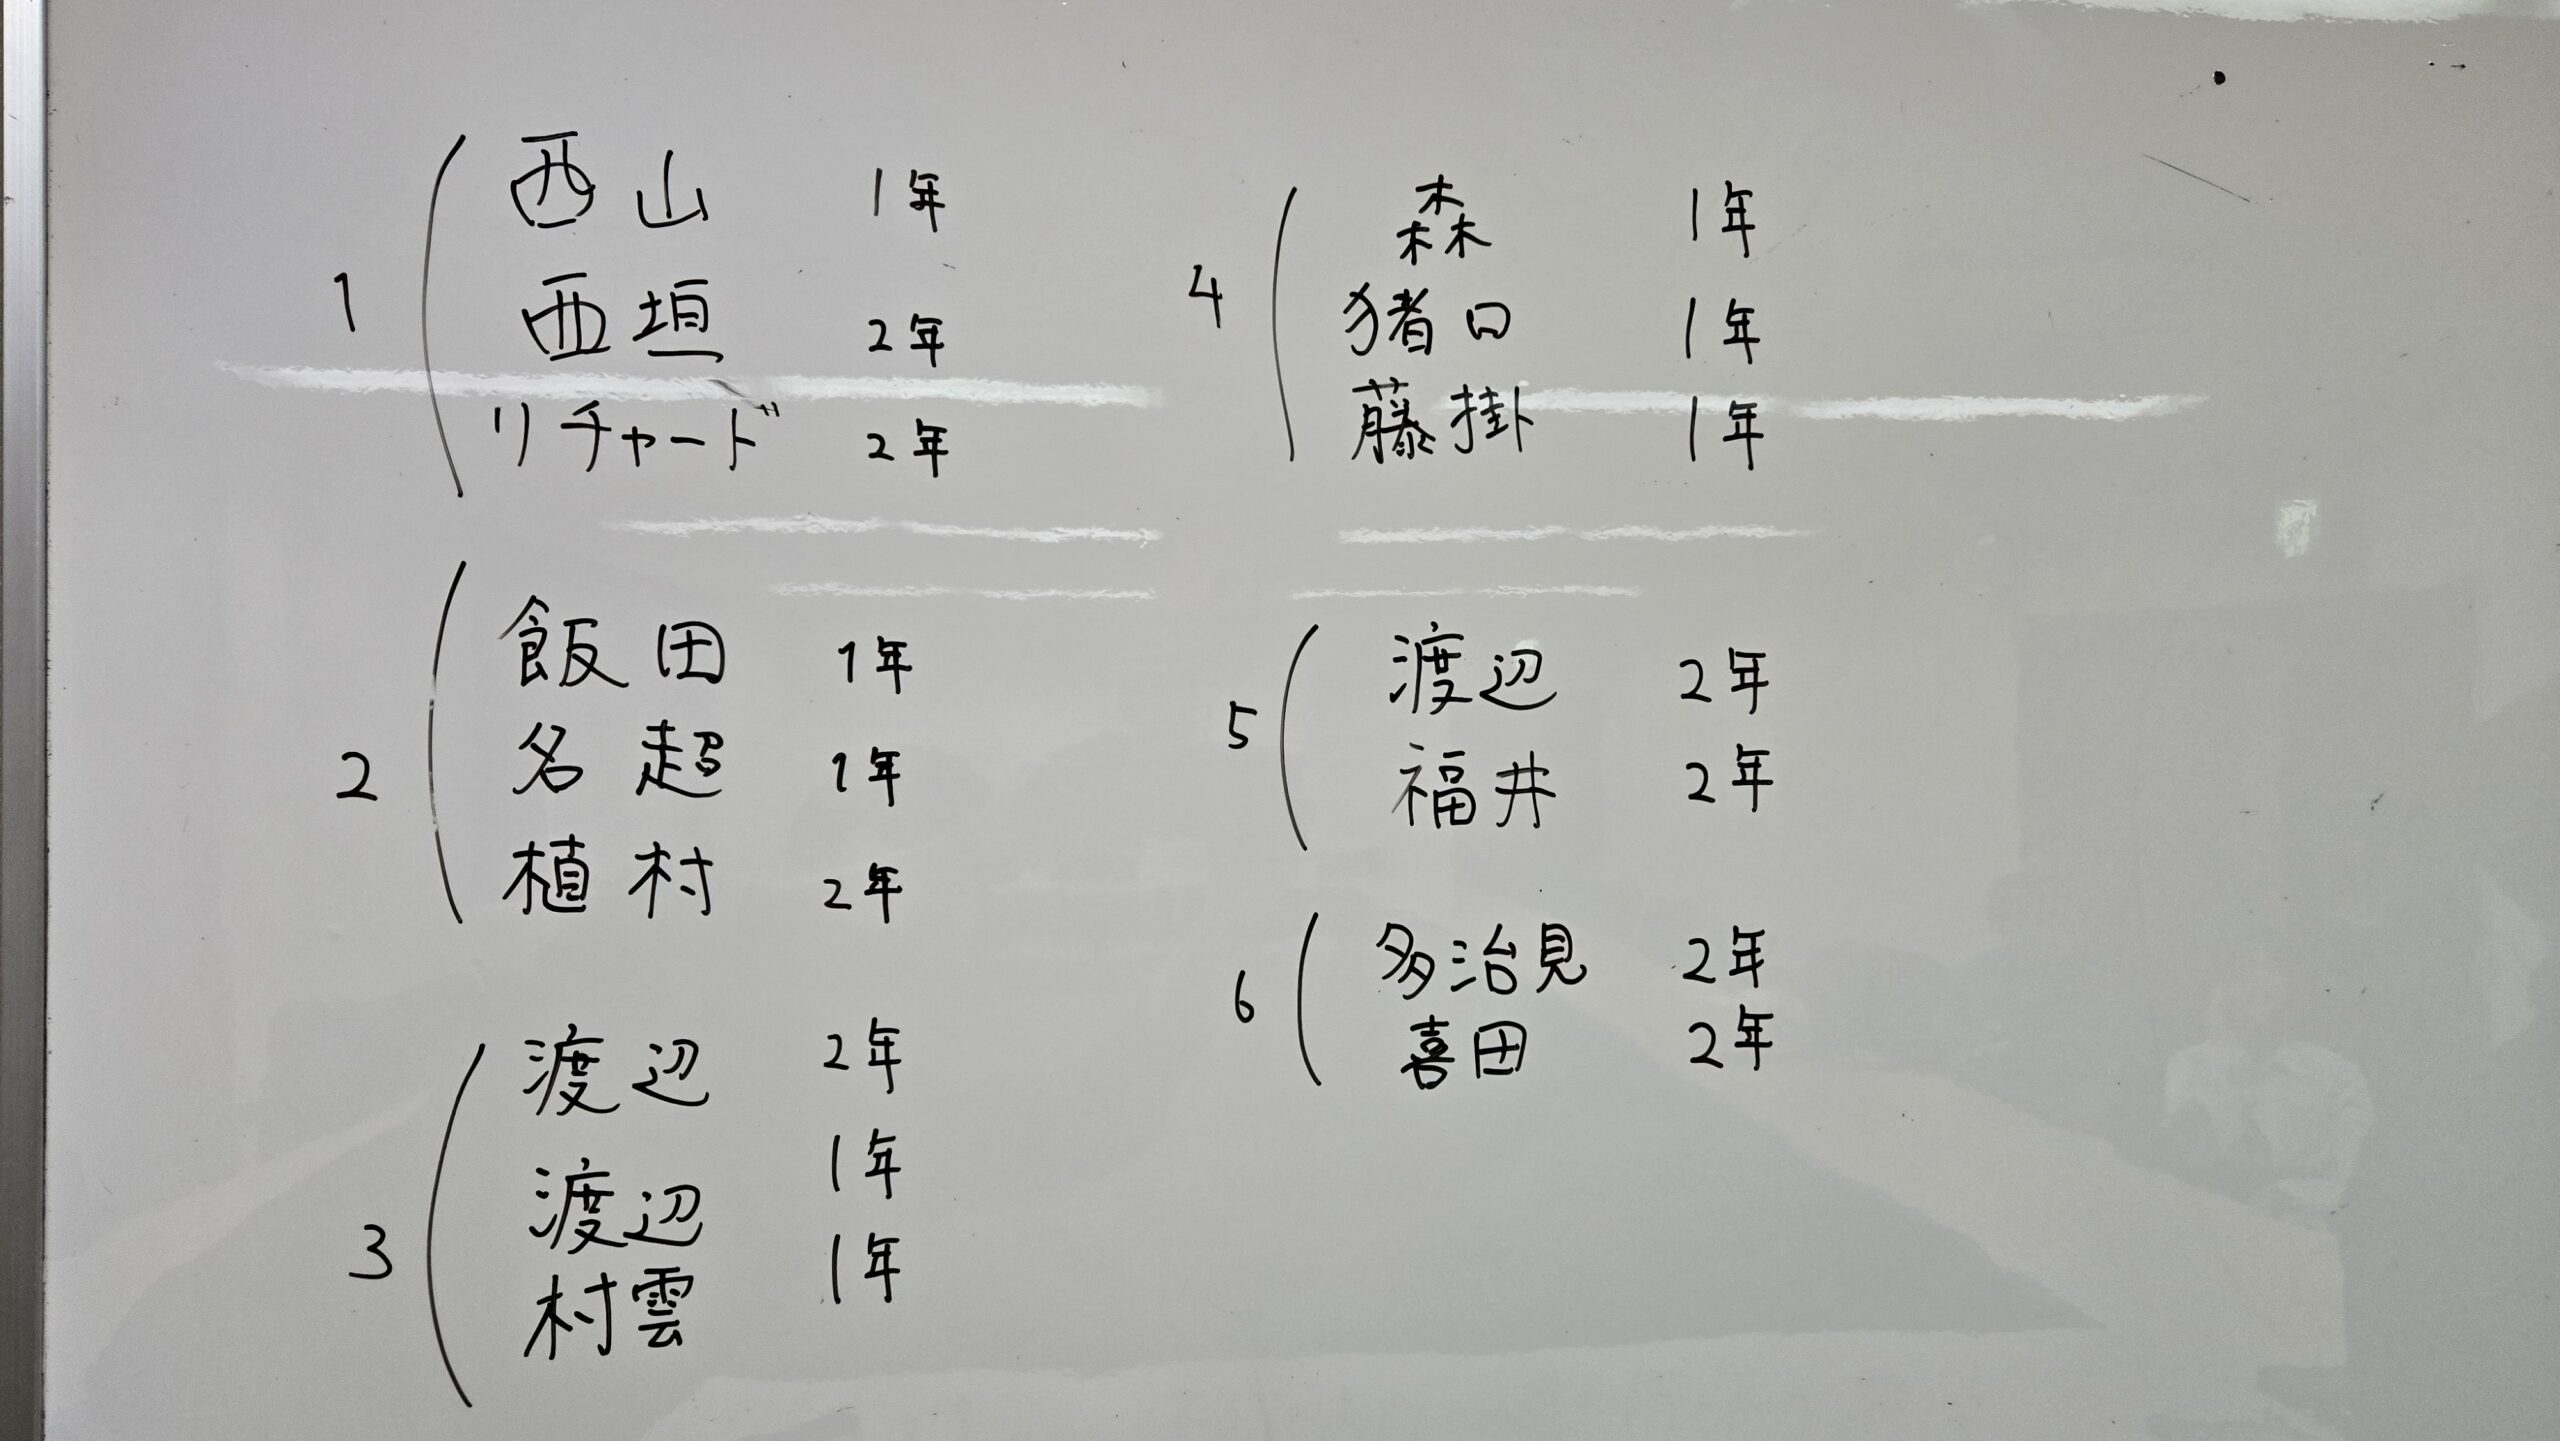 1
西山 1年
西垣 2年
リチャード 2年
2
飯田 1年
名超 1年
植村 2年
3
渡辺 2年
渡辺 1年
村雲 1年
4
森 1年
猪口 1年
藤掛 1年
5
渡辺 2年
福井 2年
6
多治見 2年
喜田 2年